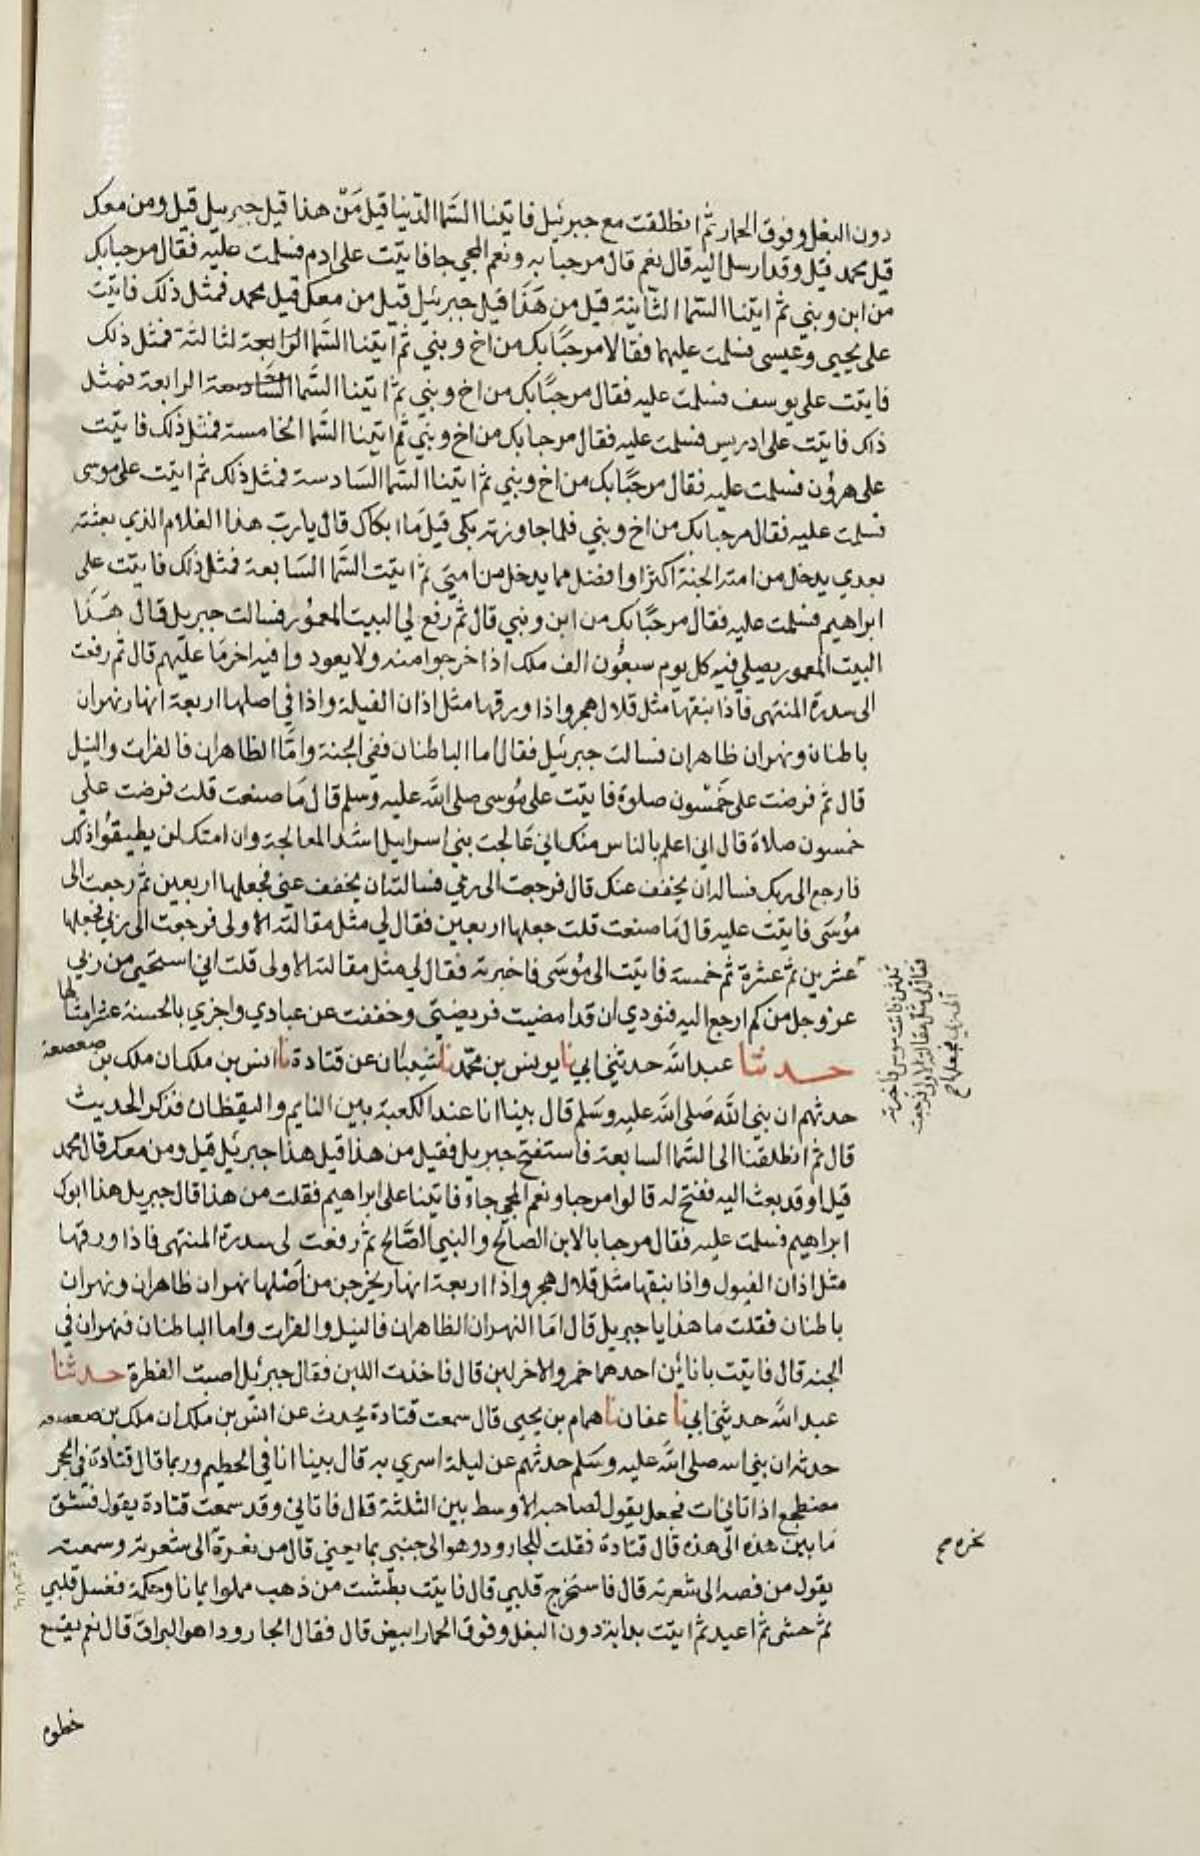 دون البغل وفوق الحمار ثم انطلقت مع جبرئيل فاتينا السما الدنيا قيل من هذا قيل جبريل قيل ومن معك
قيل محمد قيل وقد ارسل اليه قال نعم قال مرحبا به ونعم المجي جا فاتيت على ادم فسلمت عليه فقال مرحبا بك
من ابن ونبي ثم اتينا السما الثانية قيل من هذا قيل جبرئيل قيل من معك قيل محمد فمثل ذلك فاتيت
على يحيى وعيسى فسلمت عليهما فقالا مرحبا بك من اخ ونبي ثم اتينا السما الثالثة فمثل ذلك
فاتيت على يوسف فسلمت عليه فقال مرحبا بك من اخ ونبي ثم اتينا السما الرابعة فمثل
ذاك فاتيت على ادريس فسلمت عليه فقال مرحبا بك من اخ ونبي ثم اتينا السما الخامسة فمثل ذلك فاتيت
على هرون فسلمت عليه فقال مرحبا بك من اخ ونبي ثم اتينا السما السادسة فمثل ذلك ثم اتيت على موسى
فسلمت عليه فقال مرحبا بك من اخ ونبي فلما جاوزته بكى قيل ما ابكاك قال يارب هذا الغلام الذي بعثته
بعدي يدخل من امته الجنة اكثر وافضل مما يدخل من امتي ثم اتيت السما السابعة فمثل ذلك فاتيت على
ابراهيم فسلمت عليه فقال مرحبا بك من ابن ونبي قال ثم رفع لي البيت المعمور فسالت جبريل قال هذا
البيت المعمور يصلي فيه كل يوم سبعون الف ملك اذا خرجوا منه ولا يعود وا فيه اخر ما عليهم قال ثم رفعت
الى سدرة المنتهى فاذا نبقها مثل قلال هجر واذا ورقها مثل اذان الفيلة واذا في اصلها اربعة انهار نهران
باطنان ونهران ظاهران فسالت جبرئيل فقال اما الباطنان ففي الجنة واما الظاهران فالفرات والنيل
قال ثم فرضت علي خمسون صلوة فاتيت على موسى صلى الله عليه وسلم قال ما صنعت قلت فرضت علي
خمسون صلاة قال اني اعلم بالناس منك اني عالجت بني اسرايل اشد المعالجة وان امتك لن يطيقوا ذلك
فارجع الى ربك فساله ان يخفف عنك قال فرجعت الى ربي فسالته ان يخفف عني فجعلها اربعين ثم رجعت الى
موسى فاتيت عليه قال ما صنعت قلت جعلها اربعين فقال لي مثل مقالته الاولى فرجعت الى ربي فجعلها
عشرين ثم عشرة ثم خمسة فاتيت الى موسى فاخبرته فقال لي مثل مقالته الاولى قلت اني استحيي من ربي
عز وجل من كم ارجع اليه فنودي ان قد امضيت فريضتي وخففت عن عبادي واجزي بالحسنة عشر امثالها
حدثنا عبد الله حدثني ابي نا يونس بن محمد نا شيبان عن قتادة نا انس بن ملك ان ملك بن صعصعة
حدثهم ان نبي الله صلى الله عليه وسلم قال بينا انا عند الكعبة بين النايم واليقظان فذكر الحديث
قال ثم انطلقنا الى السما السابعة فاستفتح جبريل فقيل من هذا قيل هذا جبرئيل قيل ومن معك قال محمد
قيل اوقد بعث اليه ففتح له قالوا مرحبا ونعم المجي جاء فاتينا على ابراهيم فقلت من هذا قال جبريل هذا ابوك
ابراهيم فسلمت عليه فقال مرحبا بالابن الصالح والنبي الصالح ثم رفعت لي سدرة المنتهى فاذا ورقها
مثل اذان الفيول واذا نبقها مثل قلال هجر واذا اربعة انهار يخرجن من اصلها نهران ظاهران ونهران
باطنان فقلت ما هذا يا جبريل قال اما النهران الظاهران فالنيل والفرات واما الباطنان فنهران في
الجنه قال فاتيت باناين احدهما خمر والاخر لبن قال فاخذت اللبن فقال جبرئيل اصبت الفطرة حدثنا
عبد الله حدثني ابي نا عفان نا همام بن يحيى قال سمعت قتادة يحدث عن انس بن ملك ان ملك بن صعصعه
حدثه ان نبي الله صلى الله عليه وسلم حدثهم عن ليلة اسري به قال بينا انا في الحطيم وربما قال قتادة في الحجر
مضطجع اذ اتاني ات فجعل يقول لصاحبه الاوسط بين الثلثة قال فاتاني وقد سمعت قتادة يقول فشق
ما بين هذه الى هذه قال قتادة فقلت للجارود وهو الى جنبي ما يعني قال من ثغرة الى شعرته وسمعته
يقول من قصه الى شعرته قال فاستخرج قلبي قال فاتيت بطشت من ذهب مملوا ايمانا وحكمة فغسل قلبي
ثم حشى ثم اعيد ثم اتيت بدابة دون البغل وفوق الحمار ابيض قال فقال الجارود اهو البراق قال نعم يقع
خطوه
ثلثين فاتيت موسى فاخبرته
فقال لي مثل مقالته الاولى فرجعت
الى ربي فجعلها صح
نحره صح